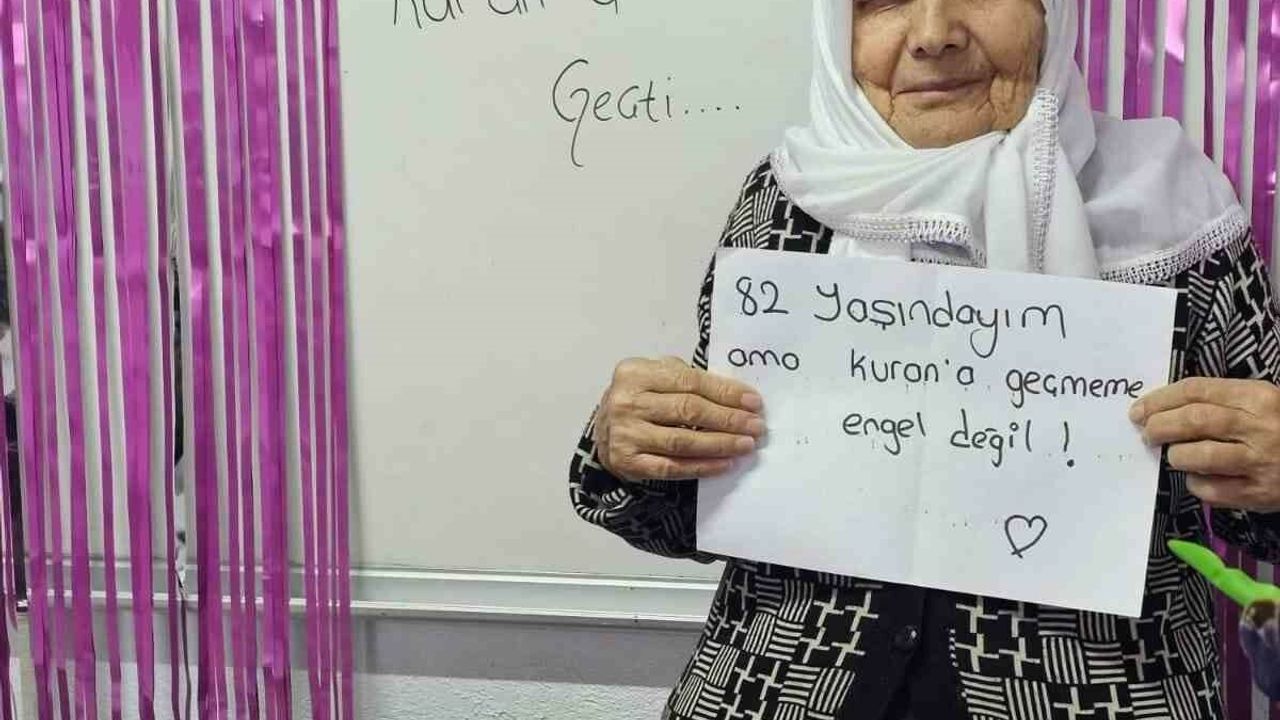 Kuran'a
Geçti....
82 Yaşındayım
ama Kuran'a geçmeme
engel değil !